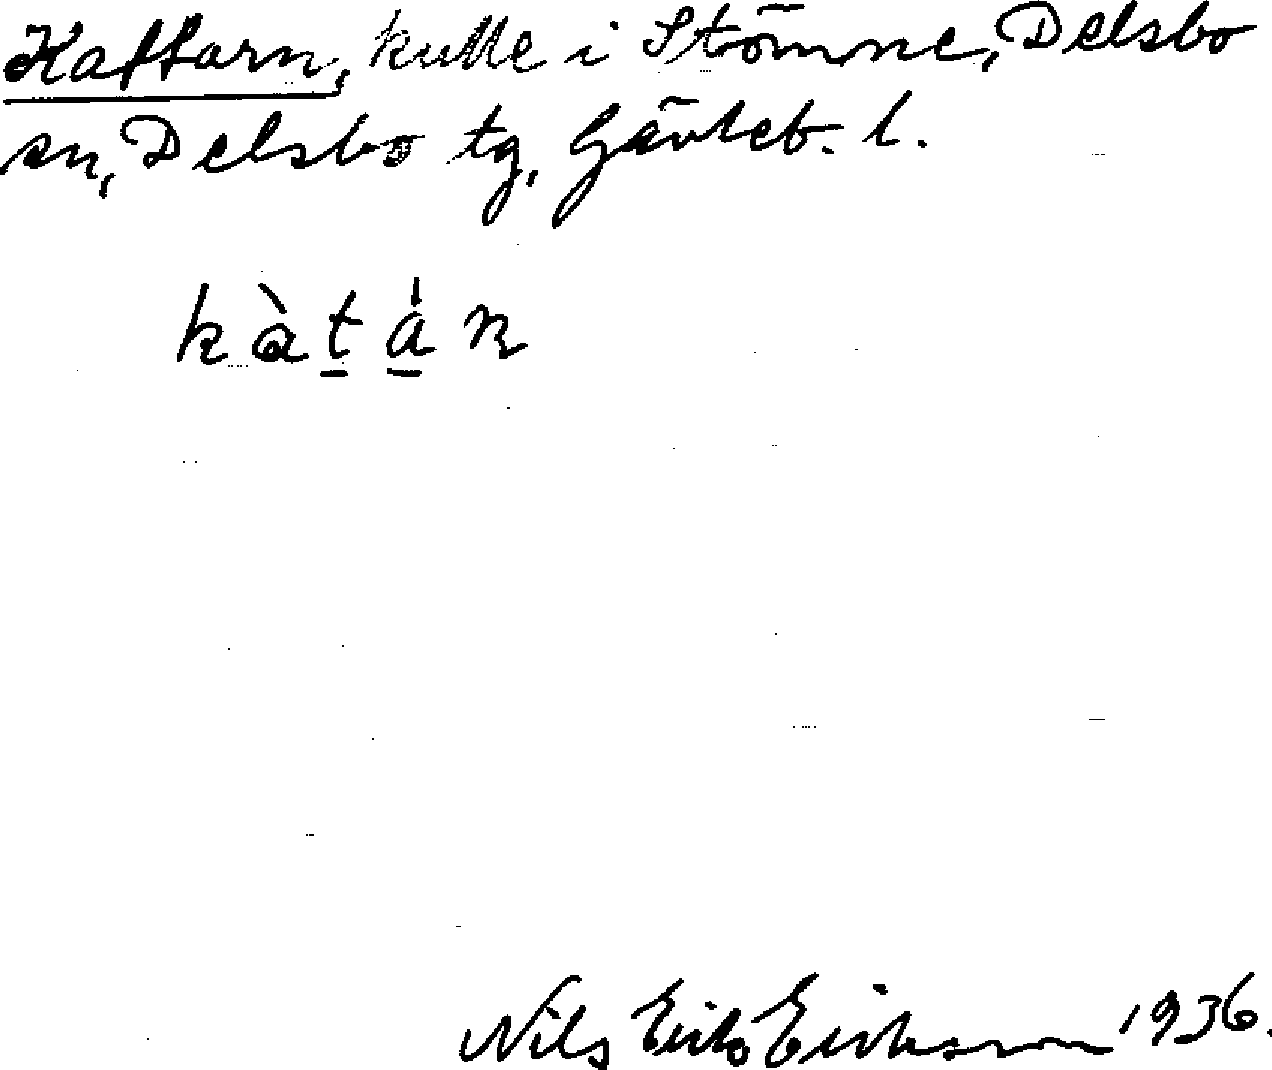 Kattarn, kulle i Stömne, Delsbo
sn, Delsbo tg, Gävleb. l.
kàtán
Nils Erik Eriksson 1936.